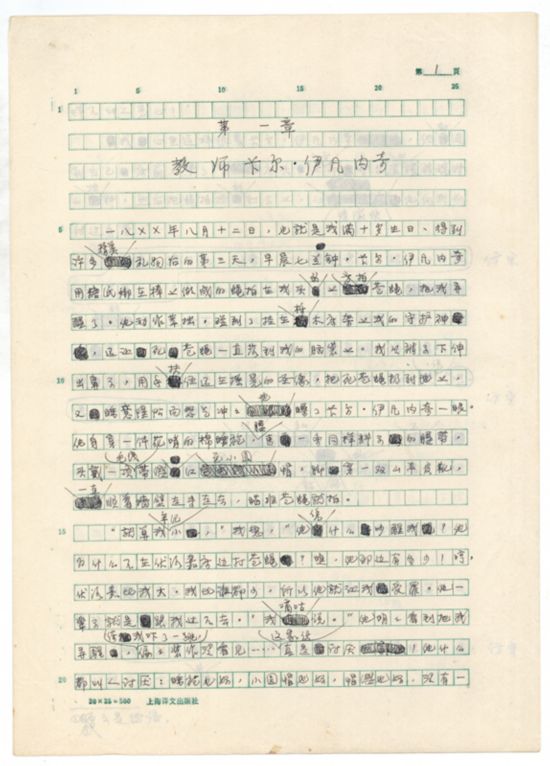 第 1 页
1 5 10 15 20 25
1
第一章
教师卡尔·伊凡内奇
5 一八××年八月十二日，也就是我满十岁生日、得到
许多精美礼物后的第三天，早晨七点钟，卡尔·伊凡内奇
用糖纸绑在棒上做成的蝇拍在我头上 苍蝇，把我弄
醒了。他动作笨拙，碰到了挂在 木床架上我的守护神
，这让死苍蝇一直落到我的脑袋上。我从被子下伸
10 出鼻子，用手扶住还在摇晃的圣像，把死苍蝇扔到地上，
又 睡意惺忪而 卡尔·伊凡内奇一眼。
他身穿一件花哨的棉睡袍，一条同样料子的腰带，
头戴一顶带 红 毛小圆帽，脚穿一双山羊皮靴，
一直顺着墙壁走来走去，瞄准苍蝇 拍。
15 “就算我年纪小，”我想，“他 什么吵醒我？他
为什么不在伏洛嘉床边打苍蝇？瞧，他那边有多少！哼，
伏洛嘉比我大，我比谁都小，所以他就让我受罪。他一
辈子就是 跟我过不去。”我嘀咕说。“他明明看到把我
弄醒， 我吓了一跳，偏偏装作没看见……真是讨厌 ！他什么
20 都叫人讨厌：睡袍也好，小圆帽也好，帽缨也好，没有一
20×25=500 上海译文出版社